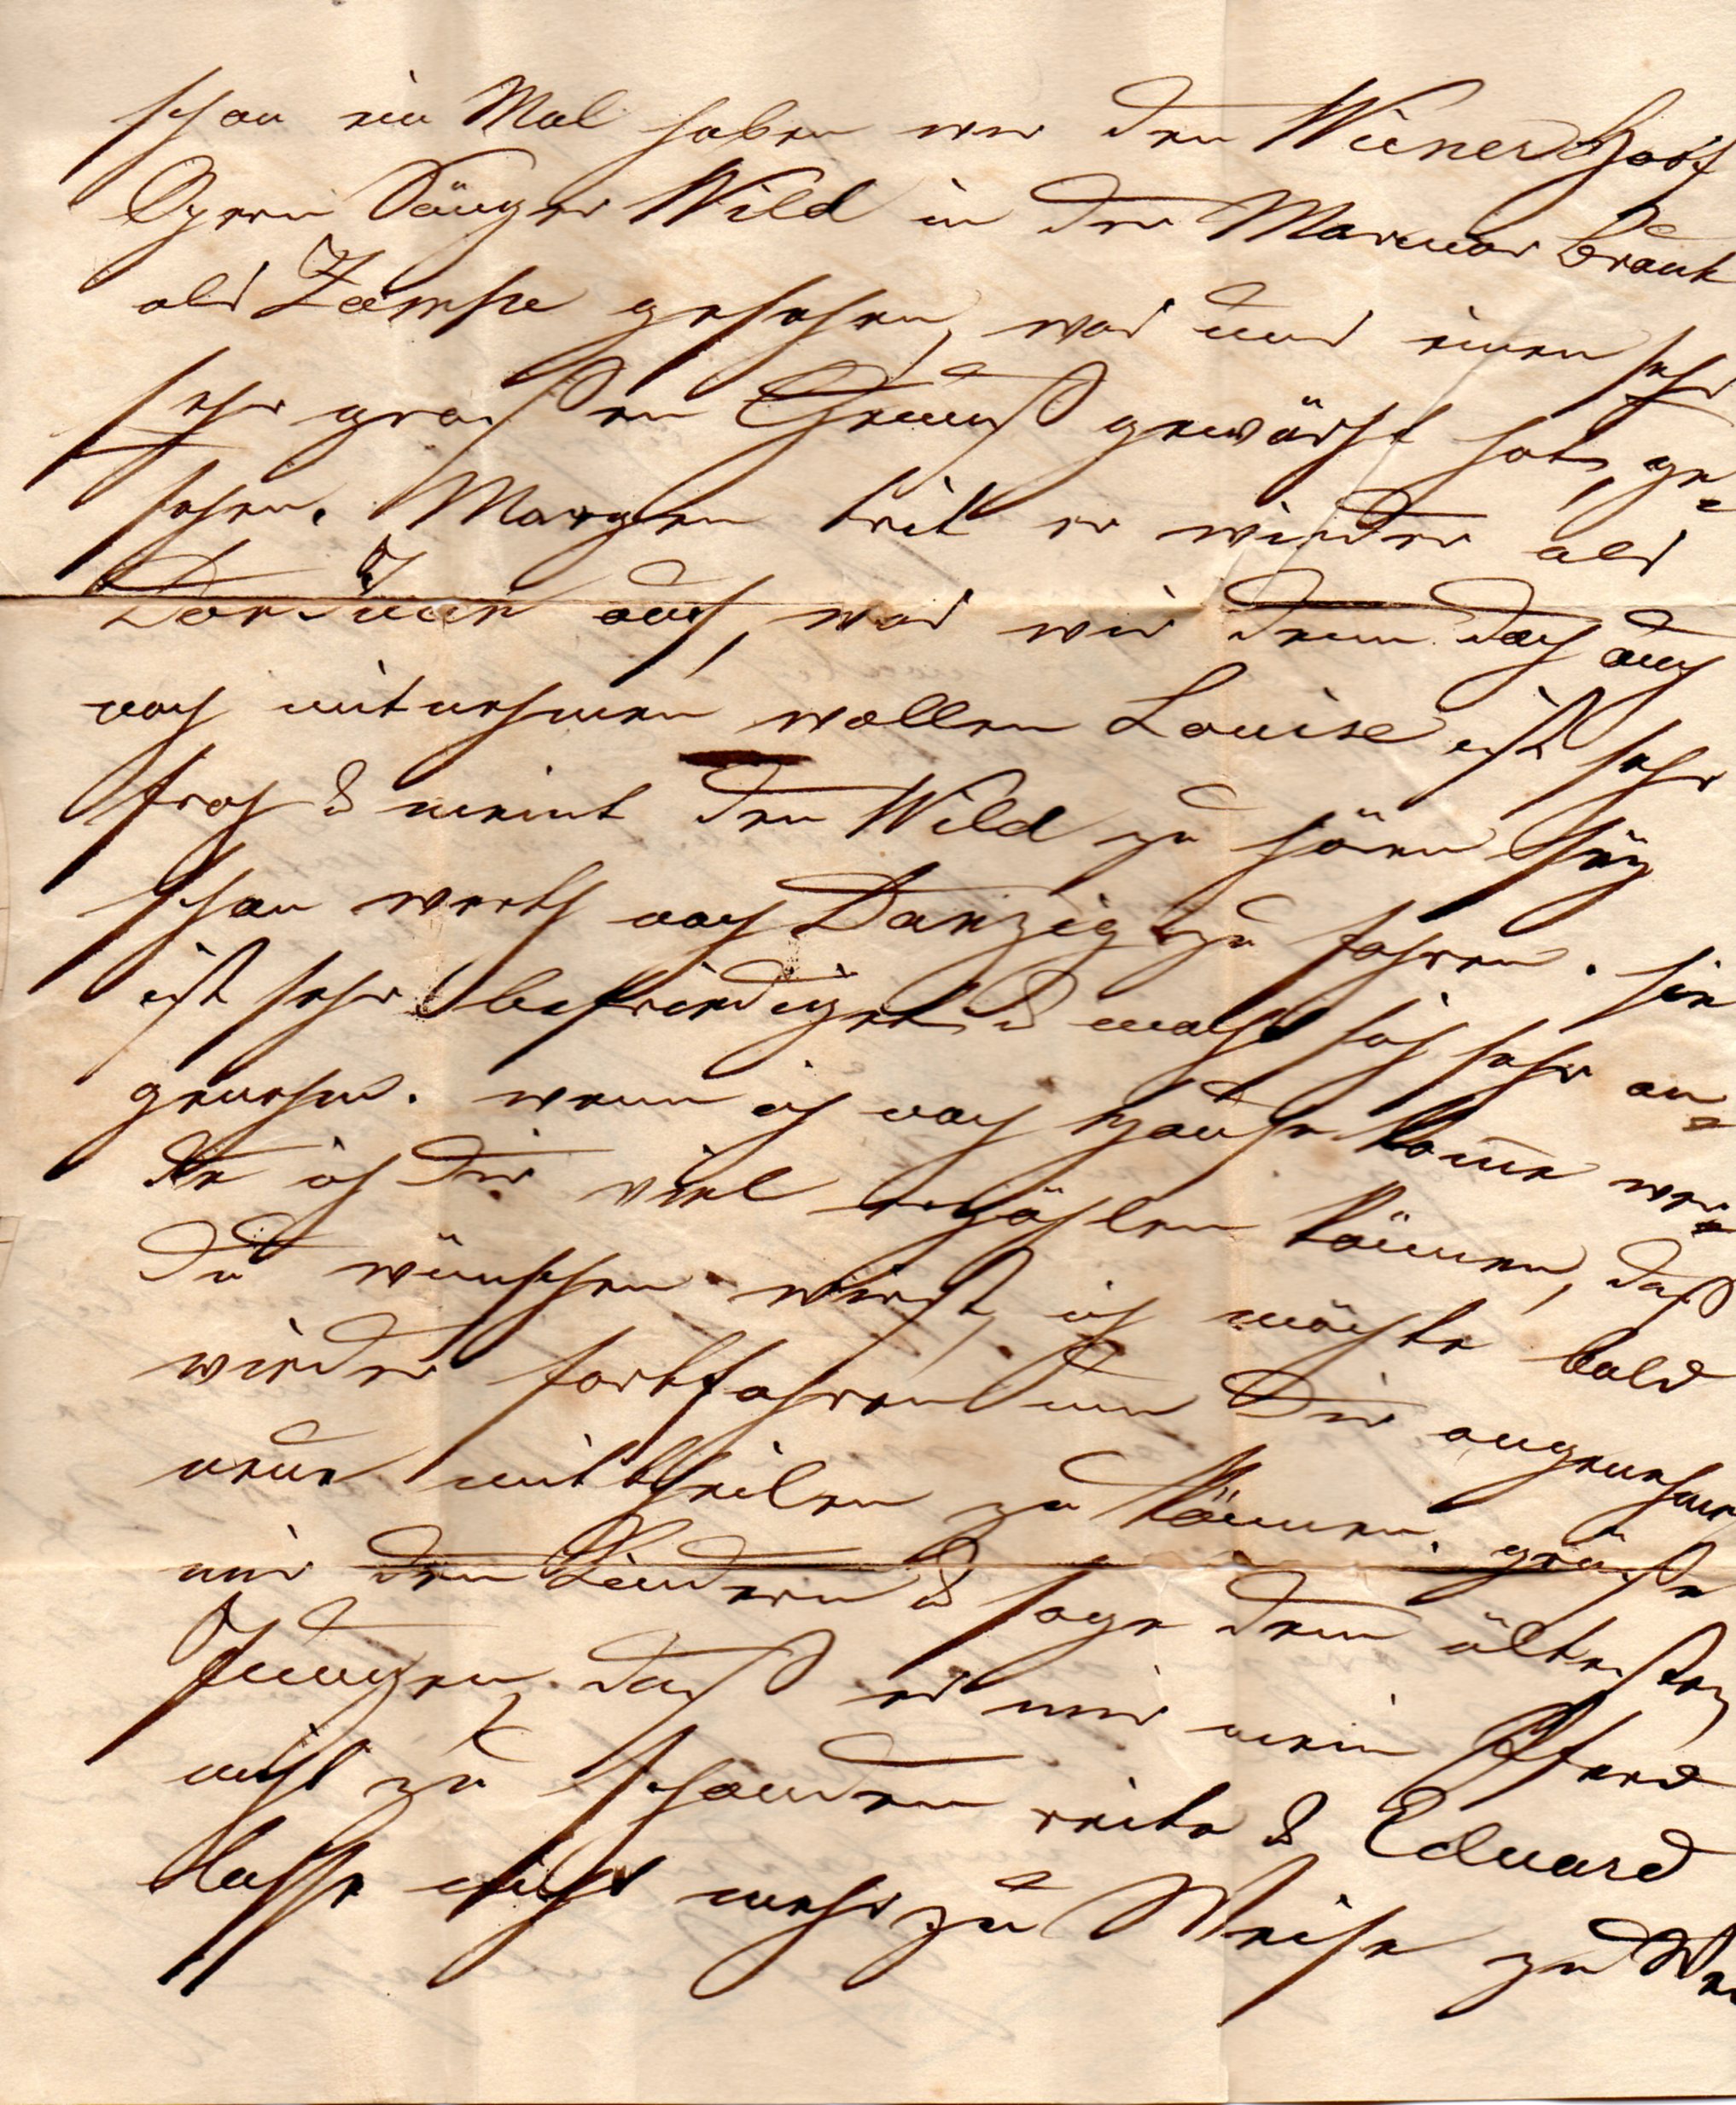 schon ein Mal haben wir den Wiener Hof
Opern Sänger Wild in der Marmor Braut
als Zampa gesehen, was uns einen sehr
sehr großen Genuß gewährt hat, ge=
sehen. Morgen trit er wieder als
Don Juan auf, was wir denn doch auch
noch mitnehmen wollen Louise ist sehr
froh & meint den Wild zu hören sey
schon werth nach Danzig zu fahren. sie
ist sehr befriediget & macht sich sehr an=
genehm. wenn ich nach Hause komme wer=
de ich Dir viel erzählen können, daß
Du wünschen wirst, ich möchte bald
wieder fortfahren um Dir angenehme
neue mittheilen zu können. grüße
mir den Kindern & sage dem ältesten
Jungen, daß er mir mein Pferd
nicht zu schanden reite & Eduard
lasse nicht mehr zu Weise zu